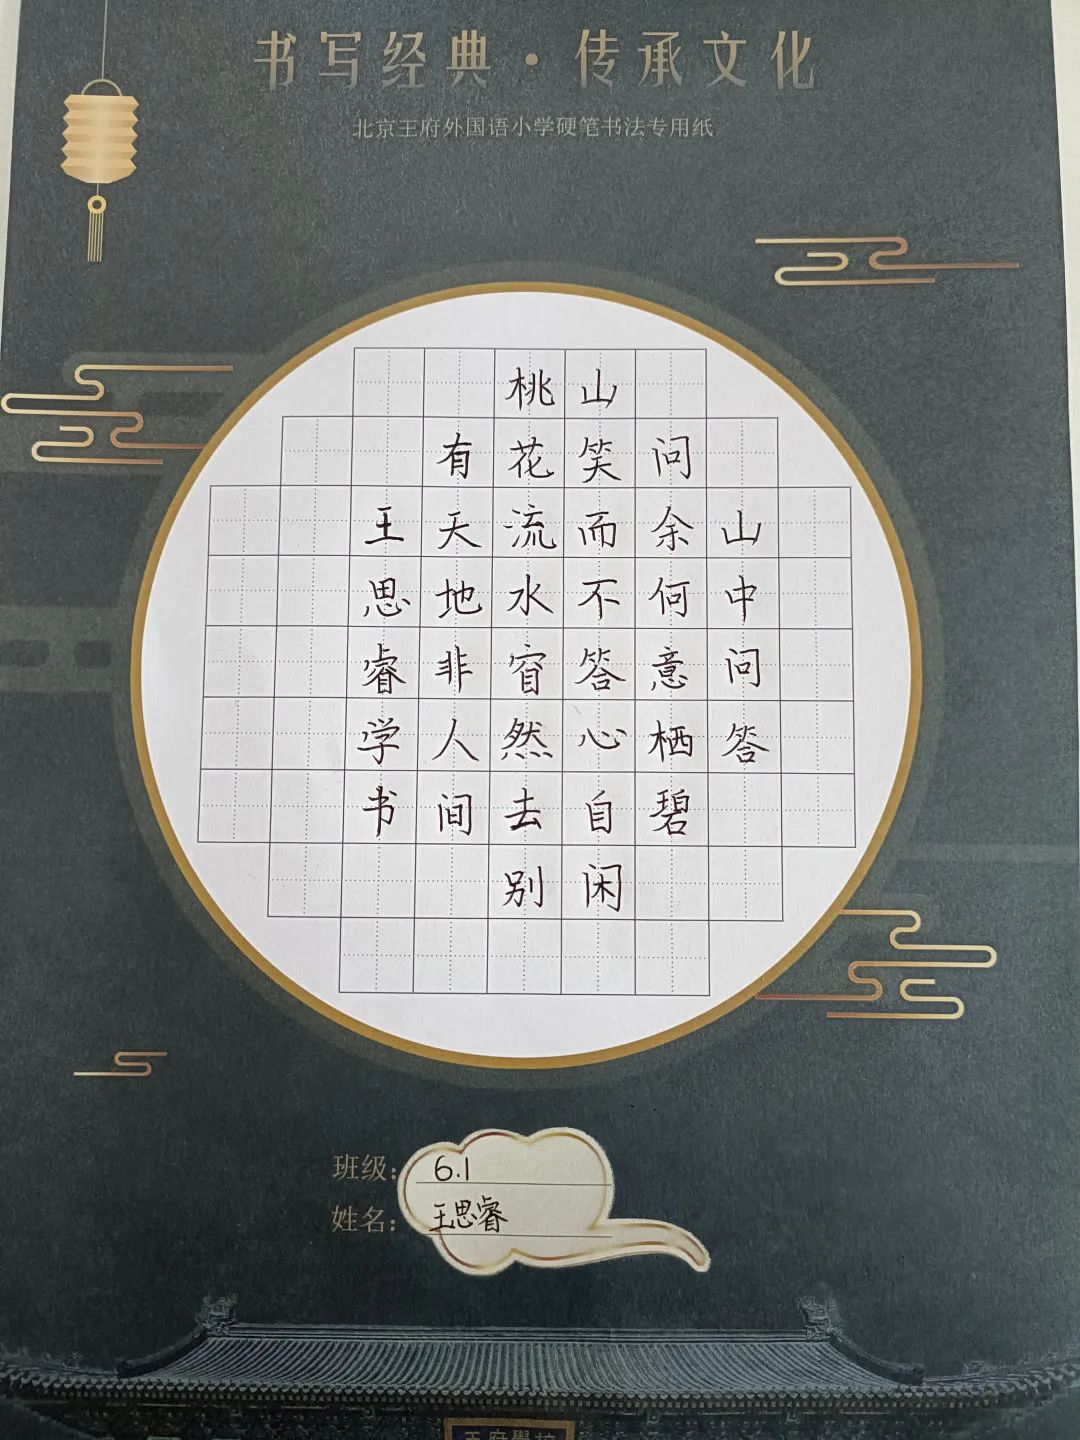 书写经典·传承文化
北京王府外国语小学硬笔书法专用纸
山中问答
问余何意栖碧
山笑而不答心自闲
桃花流水窅然去别
有天地非人间
王思睿学书
班级：6.1
姓名：王思睿